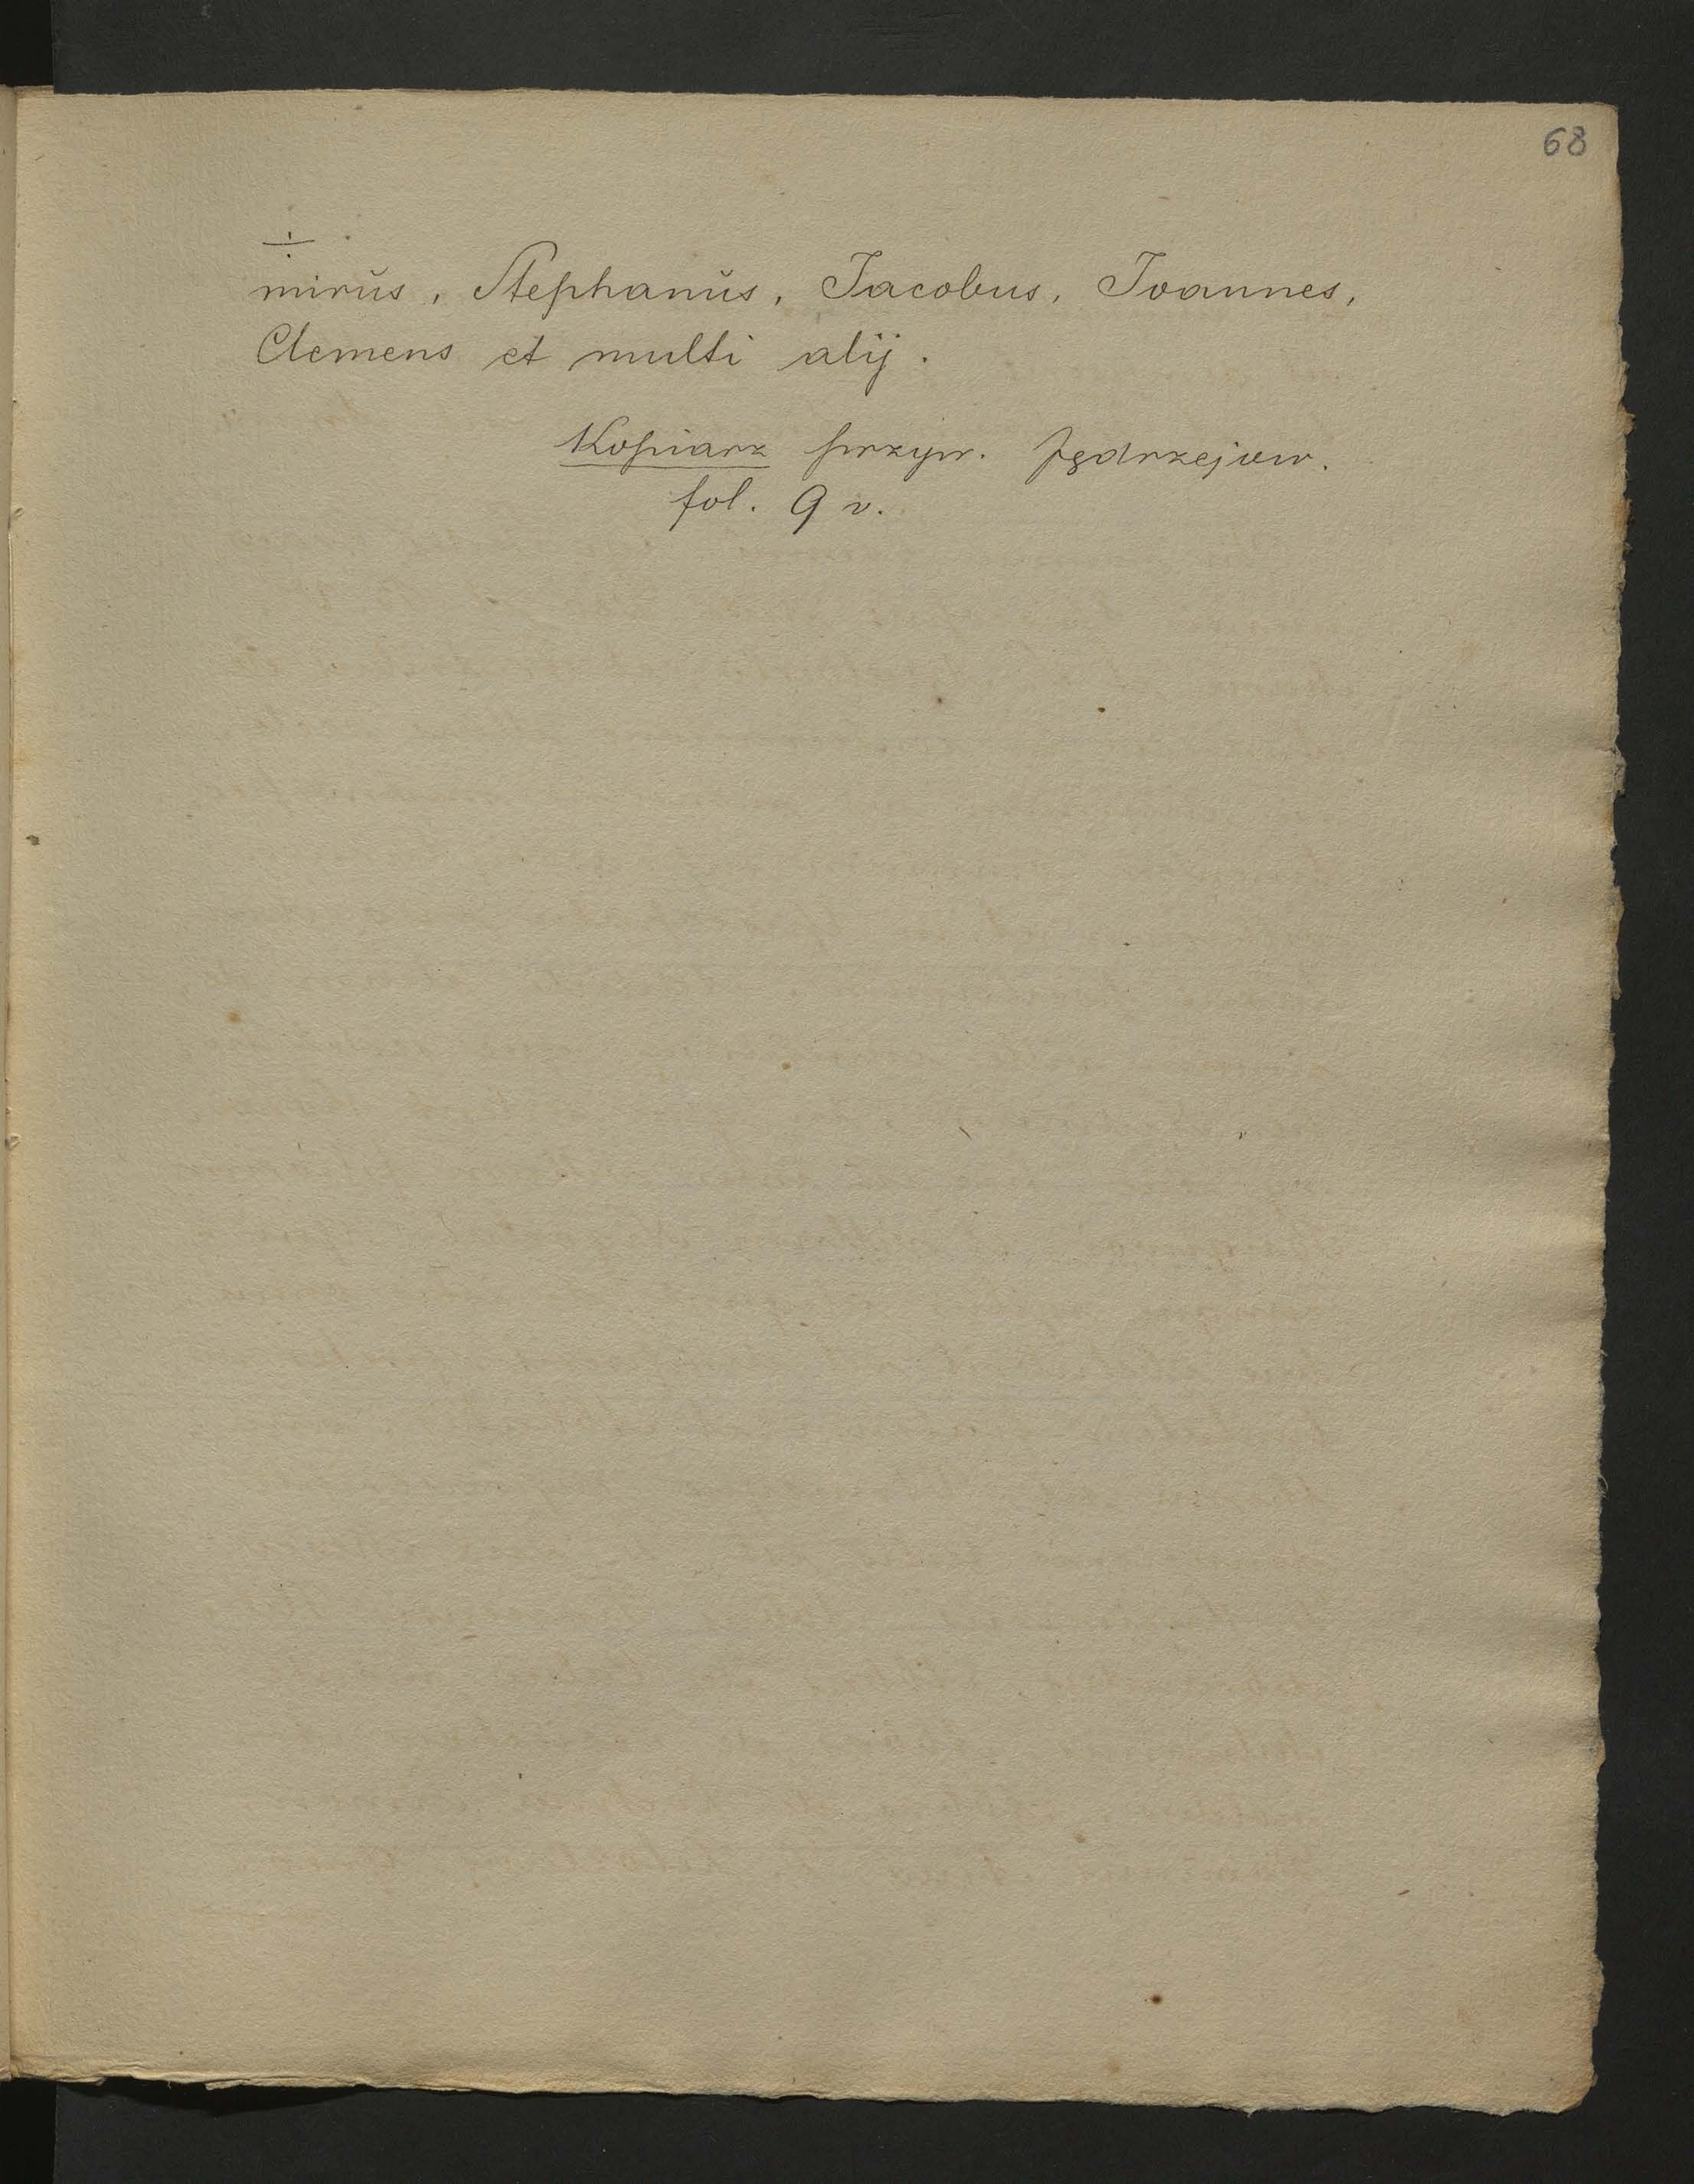 68
÷
mirŭs, Stephanŭs, Jacobus, Joannes,
Clemens et multi alij.
Kopiarz przyw. Jędrzejow.
fol. 9 v.